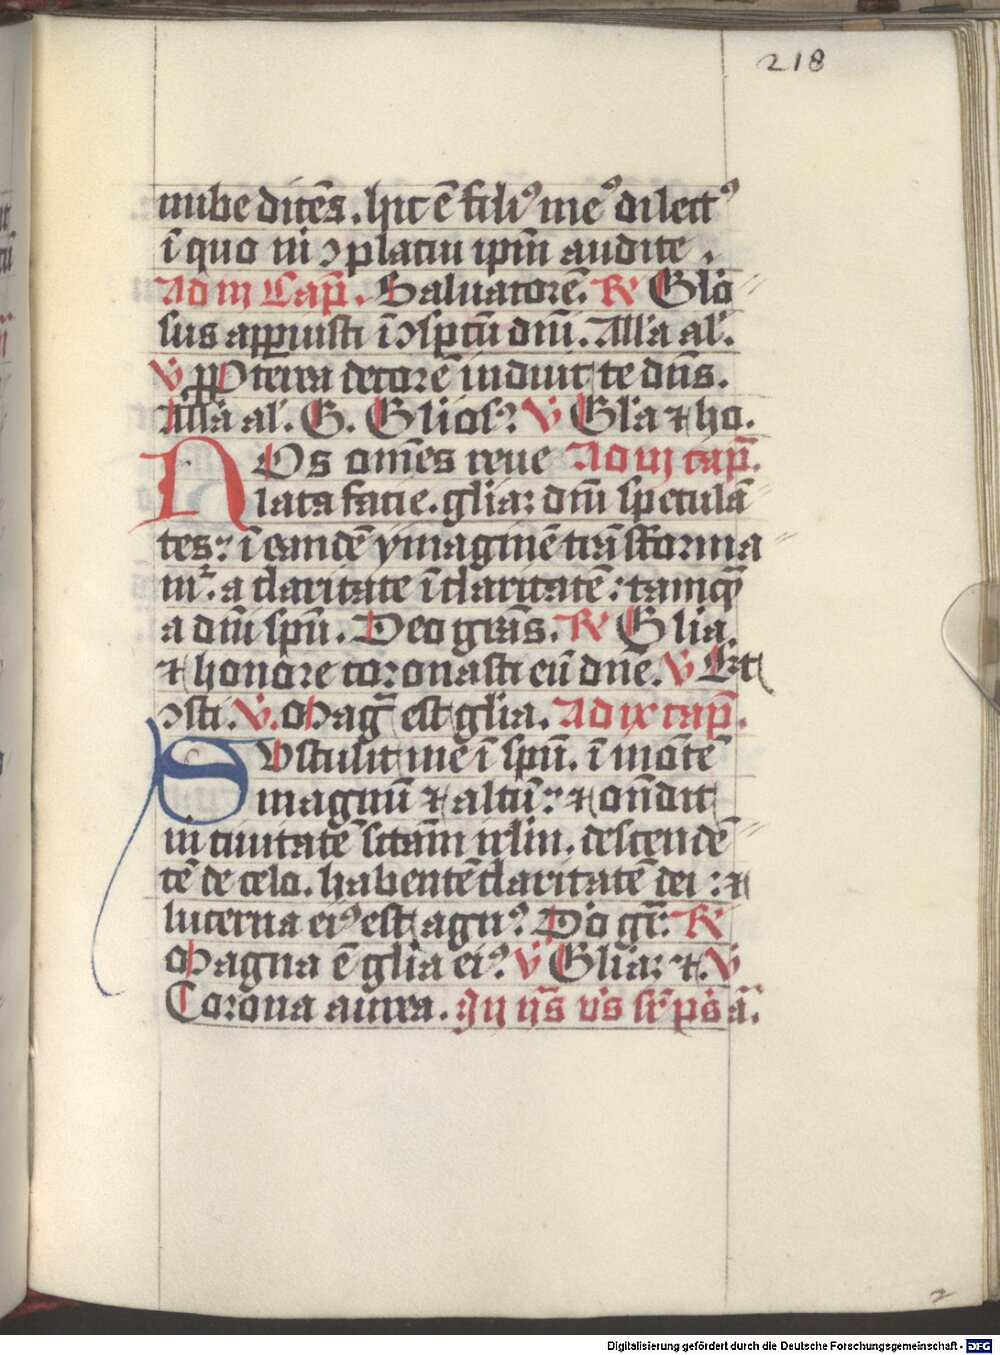 218
nube dicēs. hic ē filiꝰ meꝰ dilectꝰ
ī quo m̄ ꝯplacui ipm̄ audite.
Ad iij Cap̄. Saluatorē. R Glō
sus apꝑuisti ī ꝯspcū dn̄i. Allā al̄.
V Pꝑ terra decorē induit te dn̄s.
Allā al̄. G. Gliosꝰ V Glīa ⁊ ho.
NOs om̄es reue Ad vj cap̄.
lata facie. gliaꝫ dn̄i speculā
tes: ī eandē ymaginē trāsforma
mᷣ. a claritate ī claritatē: tamqͣ
a dn̄i spū. Deo grās. R Glia
⁊ honore coronasti eū dn̄e. V Et
ꝯsti. V. Magᷓ est glīa. Ad ix cap̄.
SVstulit me ī spū. ī mōte
magnū ⁊ altū: ⁊ ondit
m̄ ciuitatē sctām irlm̄. descendē
tē de celo. habentē claritatē dei: ⁊
lucerna eiꝰ est agnꝰ. Dō gr̄. R
Magna ē glīa eiꝰ. V Gliaꝫ ⁊. V
Corona aurea. In ijs vs̄ sr̄ ps̄ ā.
Digitalisierung gefördert durch die Deutsche Forschungsgemeinschaft - DFG